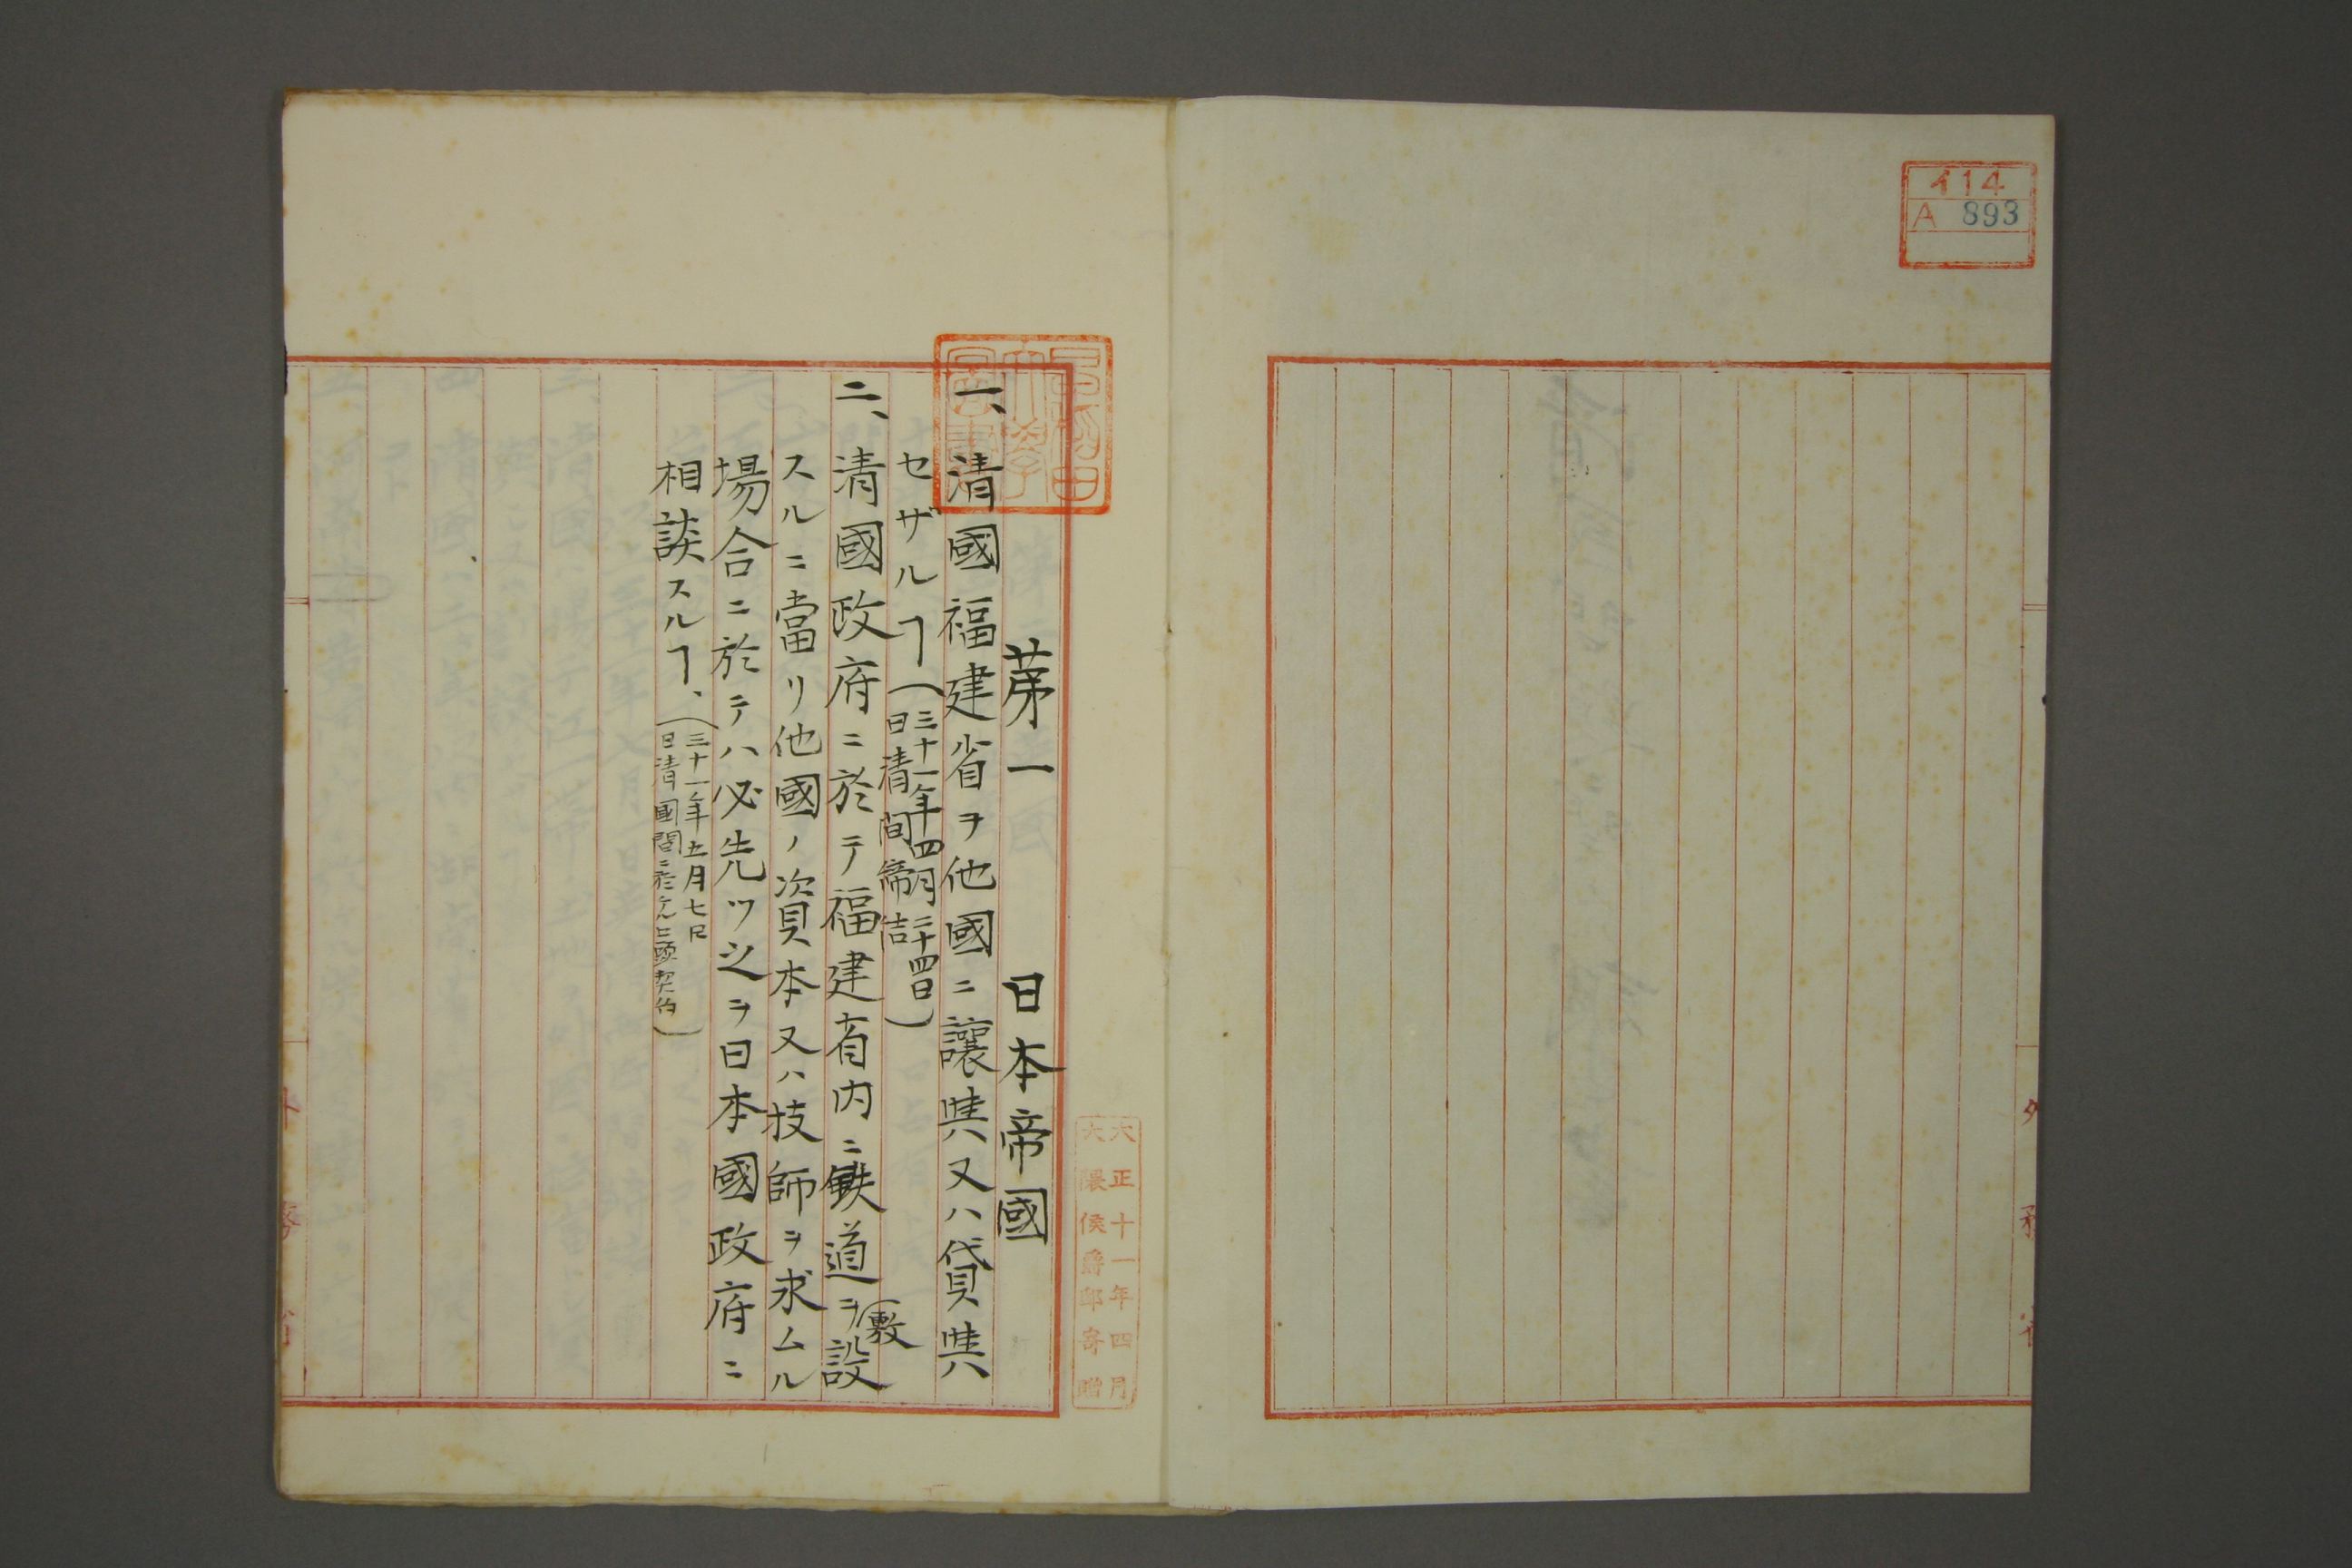 イ14
A 893
外務省
早稲田
大學
圖書
大正十一年四月
大隈侯爵邸寄贈
第一　日本帝國
一、清國福建省ヲ他國ニ讓與又ハ貸與
セザルヿ(三十一年四月二十四日
日清間締結)
二、清國政府ニ於テ福建省内ニ鉄道ヲ敷設
スルニ當リ他國ノ資本又ハ技師ヲ求ムル
場合ニ於テハ必先ツ之ヲ日本國政府ニ
相談スルヿ、(三十一年五月七日
日清國間ニ於ケル口頭契約)
外務省